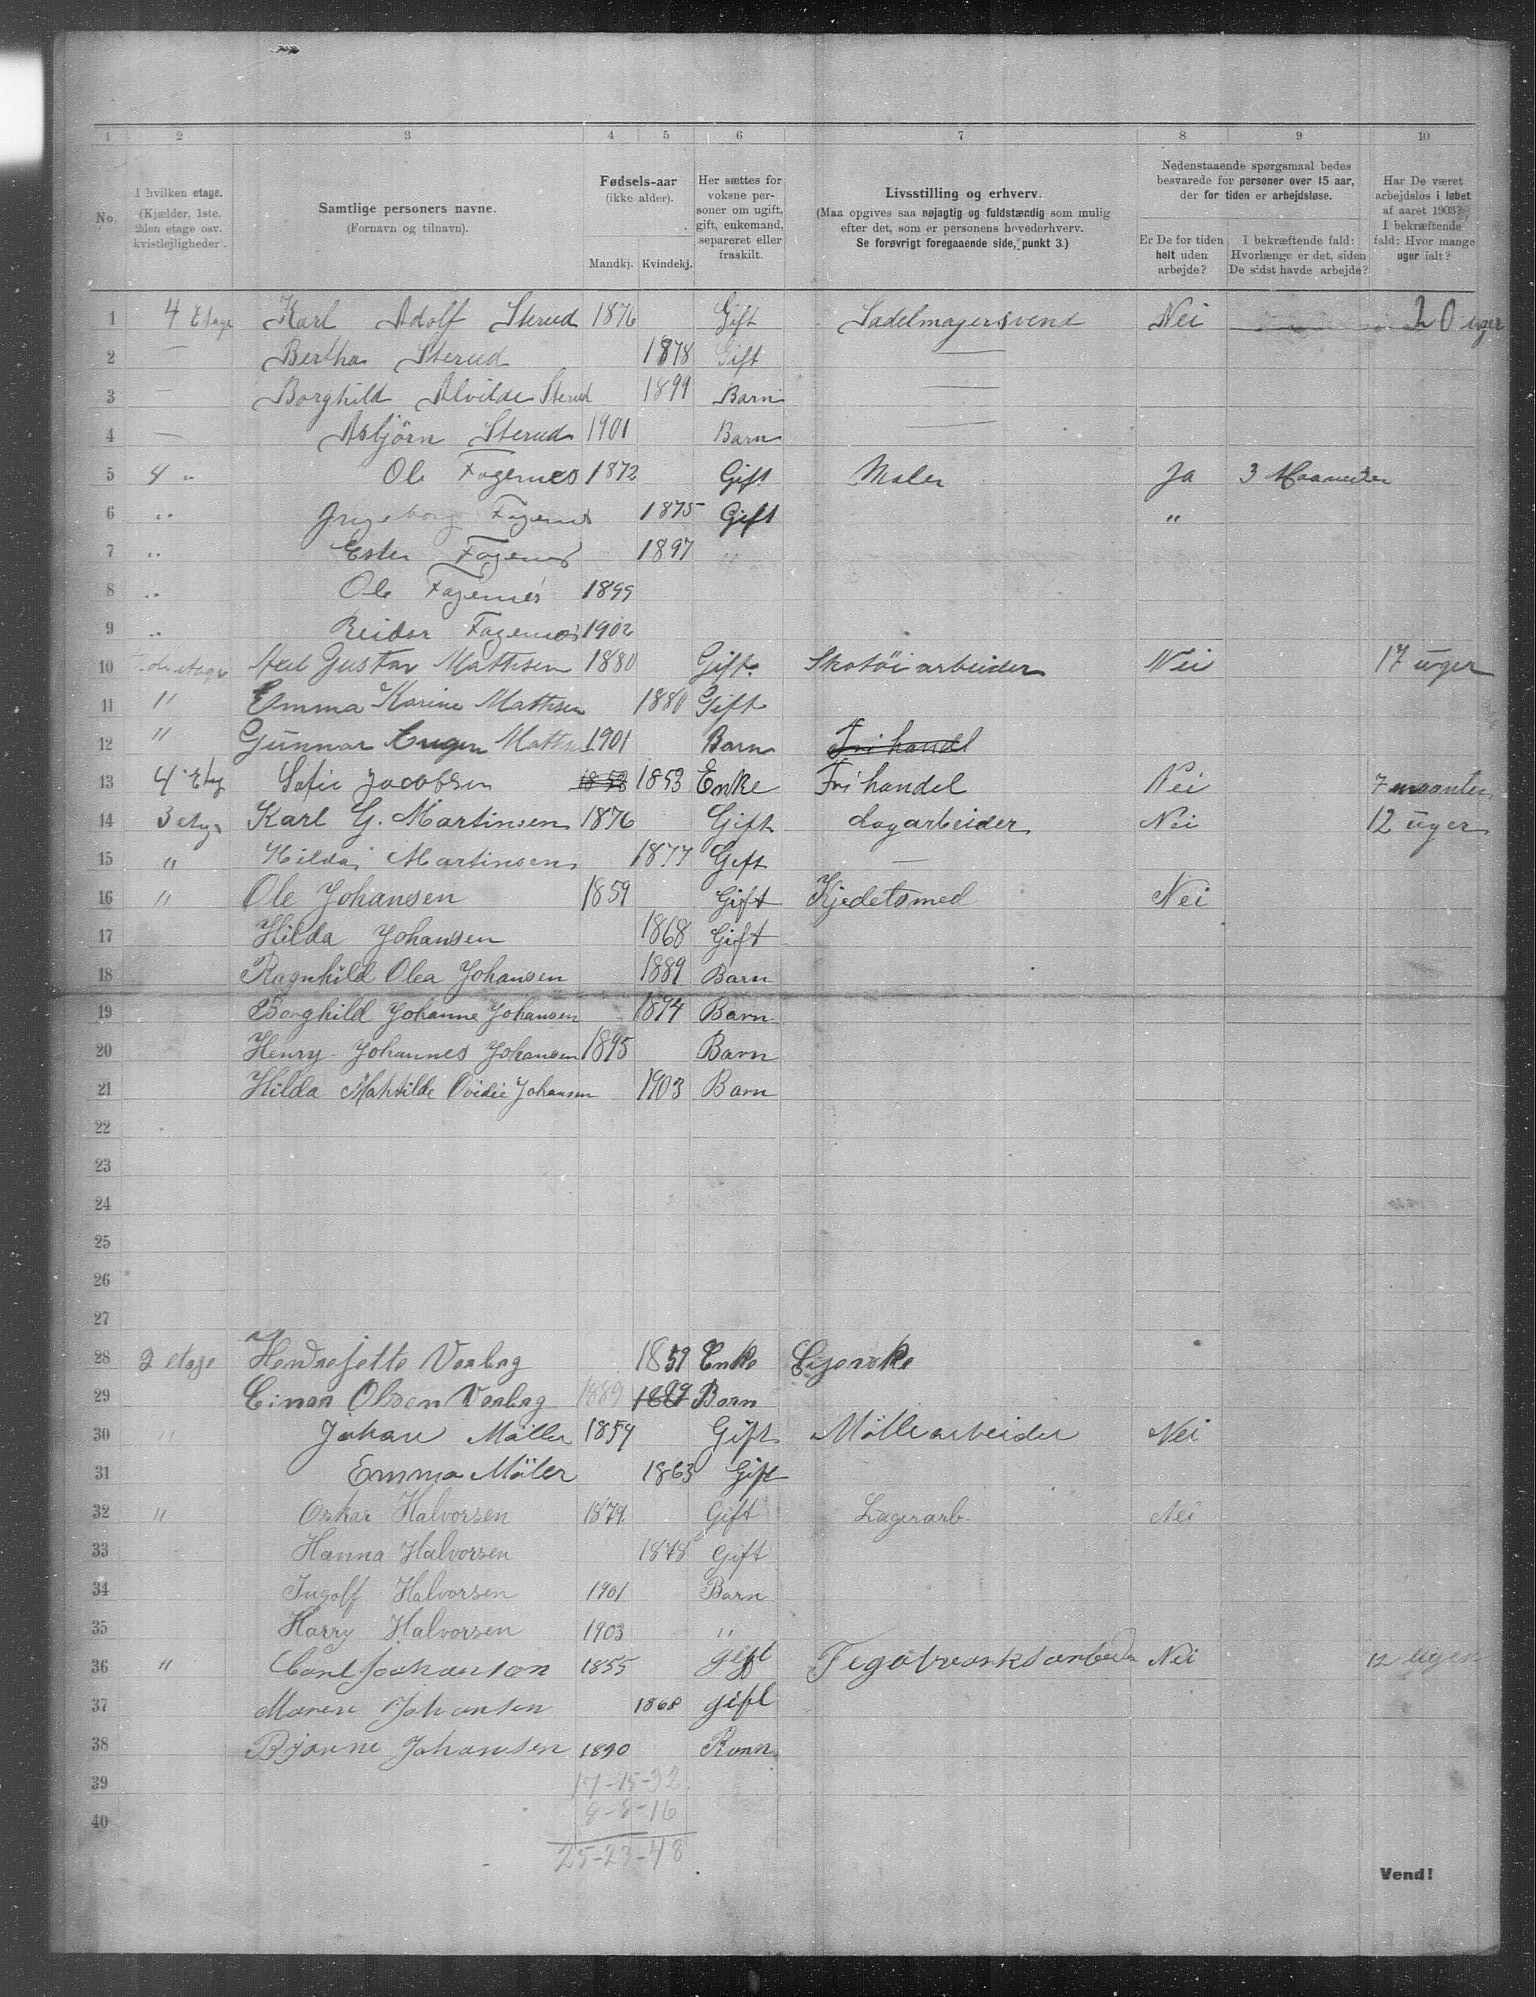 1 2 3 4 5 6 7 8 9 10
No.
I hvilken etage. (Kjælder, 1ste. 2den etage osv. kvistlejligheder).
Samtlige personers navne. (Fornavn og tilnavn).
Fødsels-aar (ikke alder).
Mandkj. Kvindekj.
Her sættes for voksne personer om ugift, gift, enkemand, separeret eller fraskilt.
Livsstilling og erhverv.
(Maa opgives saa nøjagtig og fuldstændig som mulig efter det, som er personens hovederhverv. Se forøvrigt foregaaende side, punkt 3.)
Nedenstaaende spørgsmaal bedes besvarede for personer over 15 aar, der for tiden er arbejdsløse.
Er De for tiden helt uden arbejde?
I bekræftende fald: Hvorlænge er det, siden De sidst havde arbejde?
Har De været arbejdsløs i løbet af aaret 1903? I bekræftende fald: Hvor mange uger ialt?
1 4 Etage Karl Adolf Sterud 1876 Gift Sadelmagersvend Nei 20 uger
2 — Bertha Sterud 1878 Gift —
3 — Borghild Alvilde Sterud 1899 Barn —
4 — Asbjörn Sterud 1901 Barn —
5 4 " Ole Fagernes 1872 Gift Maler Ja 3 Maaneder
6 " Ingeborg Fagernes 1875 Gift "
7 " Ester Fagernes 1897 "
8 " Ole Fagernes 1899
9 " Reidar Fagernes 1902
10 etage Gustav Mathisen 1880 Gift. Skotöiarbeider Nei 17 uger
11 " Emma Karine Mathisen 1880 Gift
12 " Gunnar Eugen 1901 Barn Fri handel
13 4 Etg Sofie Jacobsen 1853 1853 Enke Fri handel Nei 7 maaneter
14 3 etg. Karl G. Martinsen 1876 Gift Lagarbeider Nei 12 uger
15 " Hilda Martinsen 1877 Gift —
16 " Ole Johansen 1859 Gift Kjedelsmed Nei
17 Hilda Johansen 1868 Gift
18 Ragnhild Olea Johansen 1889 Barn
19 Borghild Johanne Johansen 1894 Barn
20 Henry Johannes Johansen 1895 Barn
21 Hilda Mathilde Ovidie Johansen 1903 Barn
22
23
24
25
26
27
28 2 etage 1859 Enke
29 Einar Olsen 1889 1889 Barn
30 " Johan Möller 1859 Gift Möllearbeider Nei
31 Emma Möler 1863 Gift
32 " Oskar Halvorsen 1879. Gift Lagerarb. Nei
33 Hanna Halvorsen 1878 Gift
34 Ingolf Halvorsen 1901 Barn
35 Harry Halvorsen 1903 "
36 " Carl Johanson 1855 gift Nei 12 ugen
37 Maren Johansen 1868 gift
38 Bjarne Johansen 1890 Barn
39 17-15-32
40 8-8-16
25-23-48
Vend!